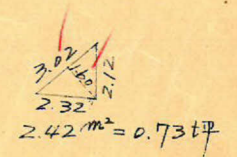 3.02
1.60
2.12
2.32
2.42 m² = 0.73坪